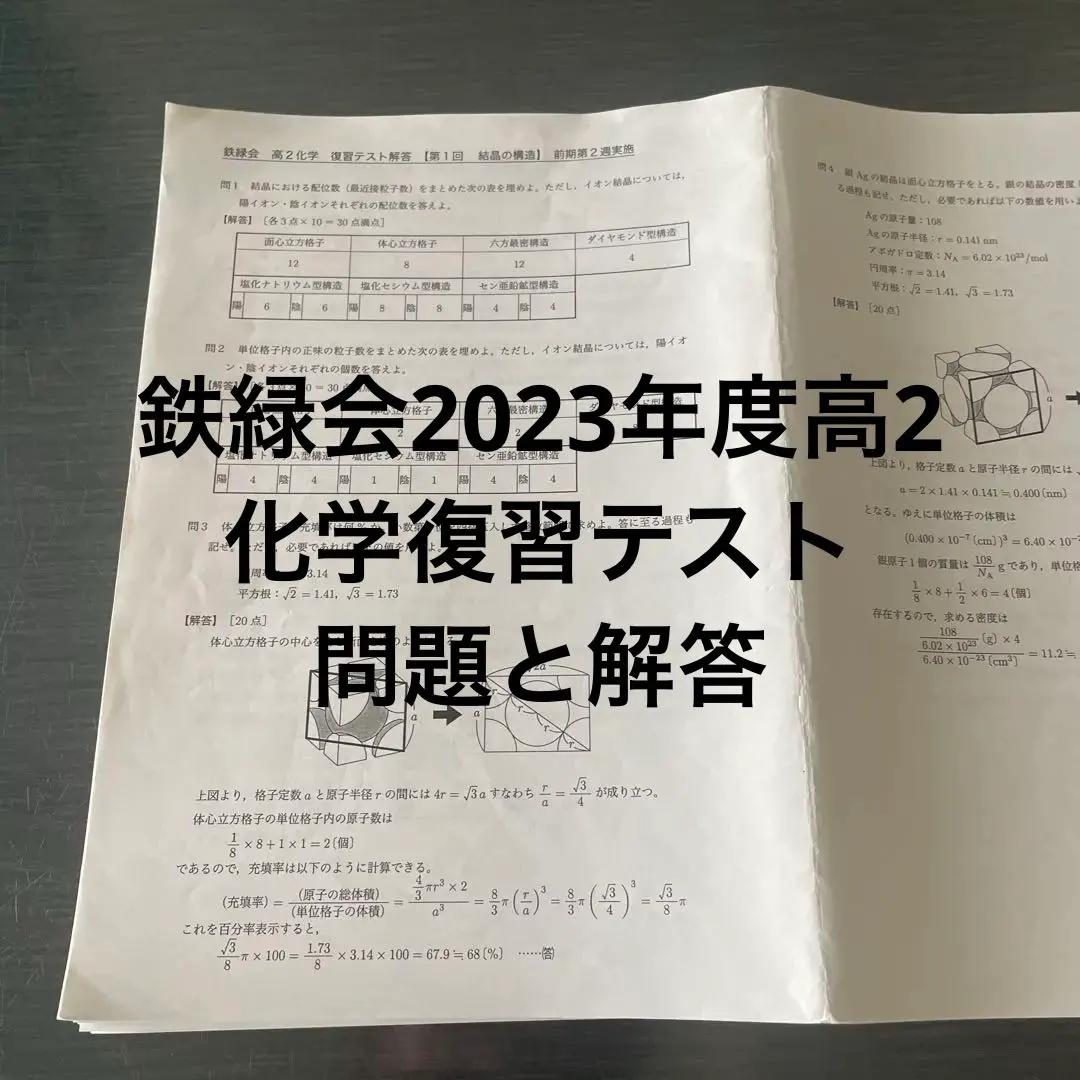 鉄緑会 高2化学 復習テスト解答 【第1回 結晶の構造】 前期第2週実施
問1 結晶における配位数（最近接粒子数）をまとめた次の表を埋めよ。ただし，イオン結晶については，
陽イオン・陰イオンそれぞれの配位数を答えよ。
【解答】［各3点×10＝30点満点］
面心立方格子 体心立方格子 六方最密構造 ダイヤモンド型構造
12 8 12 4
塩化ナトリウム型構造 塩化セシウム型構造 セン亜鉛鉱型構造
陽 6 陰 6 陽 8 陰 8 陽 4 陰 4
問2 単位格子内の正味の粒子数をまとめた次の表を埋めよ。ただし，イオン結晶については，陽イオ
ン・陰イオンそれぞれの個数を答えよ。
【解答】 ＝30点
体心立方格子 六方最密構造
2 2
塩化ナトリウム型構造 塩化セシウム型構造 セン亜鉛鉱型構造
陽 4 陰 4 陽 1 陰 1 陽 4 陰 4
鉄緑会2023年度高2
化学復習テスト
問題と解答
問3 答に至る過程も
記せ。ただし，必要であれば
3.14
平方根：√2＝1.41，√3＝1.73
【解答】［20点］
体心立方格子の中心を
a a
r r r
上図より，格子定数aと原子半径rの間には4r＝√3a すなわち r/a＝√3/4 が成り立つ。
体心立方格子の単位格子内の原子数は
1/8×8＋1×1＝2〔個〕
であるので，充填率は以下のように計算できる。
（充填率）＝（原子の総体積）/（単位格子の体積）＝(4/3 πr³×2)/a³＝8/3 π(r/a)³＝8/3 π(√3/4)³＝√3/8 π
これを百分率表示すると，
√3/8 π×100＝1.73/8×3.14×100＝67.9≒68〔％〕 ……(答)
問4 銀Agの結晶は面心立方格子をとる。銀の結晶の密度
る過程も記せ。ただし，必要であれば以下の数値を用い
Agの原子量：108
Agの原子半径：r＝0.141 nm
アボガドロ定数：N_A＝6.02×10²³/mol
円周率：π＝3.14
平方根：√2＝1.41，√3＝1.73
【解答】［20点］
a
上図より，格子定数aと原子半径rの間には
a＝2×1.41×0.141≒0.400〔nm〕
となる。ゆえに単位格子の体積は
(0.400×10⁻⁷〔cm〕)³＝6.40×10
銀原子1個の質量は 108/N_A gであり，単位格
1/8×8＋1/2×6＝4〔個〕
存在するので，求める密度は
(108/6.02×10²³〔g〕×4)/(6.40×10⁻²³〔cm³〕)＝11.2≒